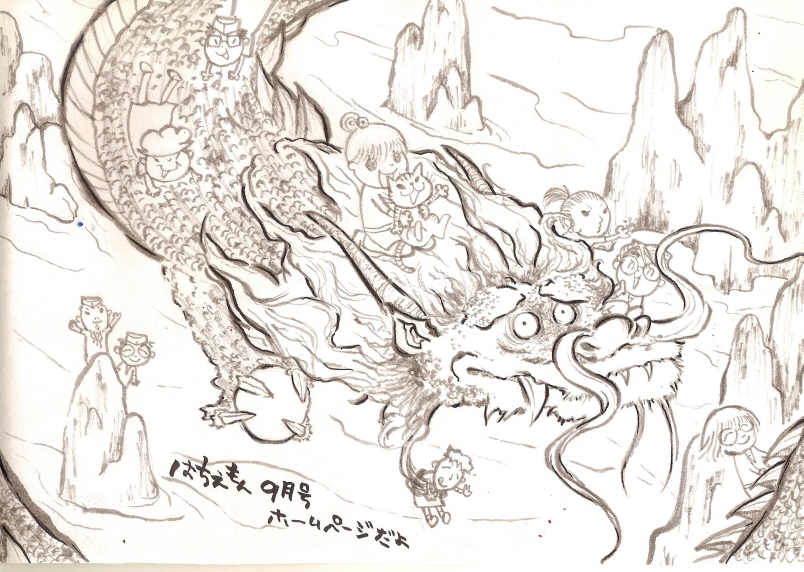 はちえもん 9月号
ホームページだよ